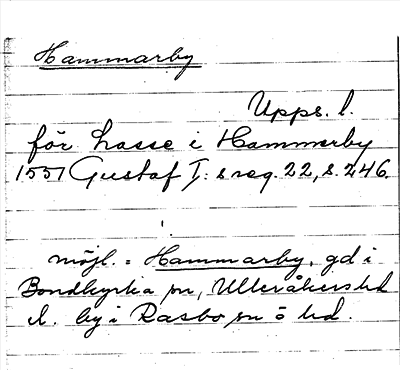 Hammarby
Upps. l.
för Lasse i Hammerby
1551 Gustaf I:s reg. 22, s. 246.
möjl. = Hammarby, gd i
Bondkyrka sn, Ulleråkers hd
el. by i Rasbo sn o hd.